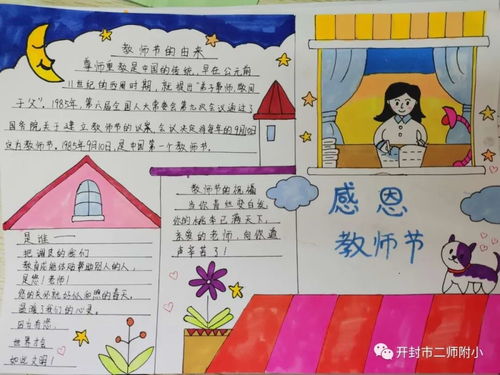 教师节的由来
尊师重教是中国的传统,早在公元前
11世纪的西周时期,就提出"弟子事师,敬同
于父"。1985年,第六届全国人大常委会第九次会议通过了
国务院关于建立教师节的议案,会议决定将每年的9月10日
定为教师节。1985年9月10日,是中国第一个教师节。
教师节的祝福
当你青丝变白发,
你的桃李已满天下,
亲爱的老师,向你道
声辛苦了!
感恩
教师节
是谁——
把调皮的我们
教育成能体贴帮助别人的人,
是您!老师!
您的关怀就好似和煦的春天,
温暖了我们的心灵。
因为有您,
世界才会
如此文明!
开封市二师附小